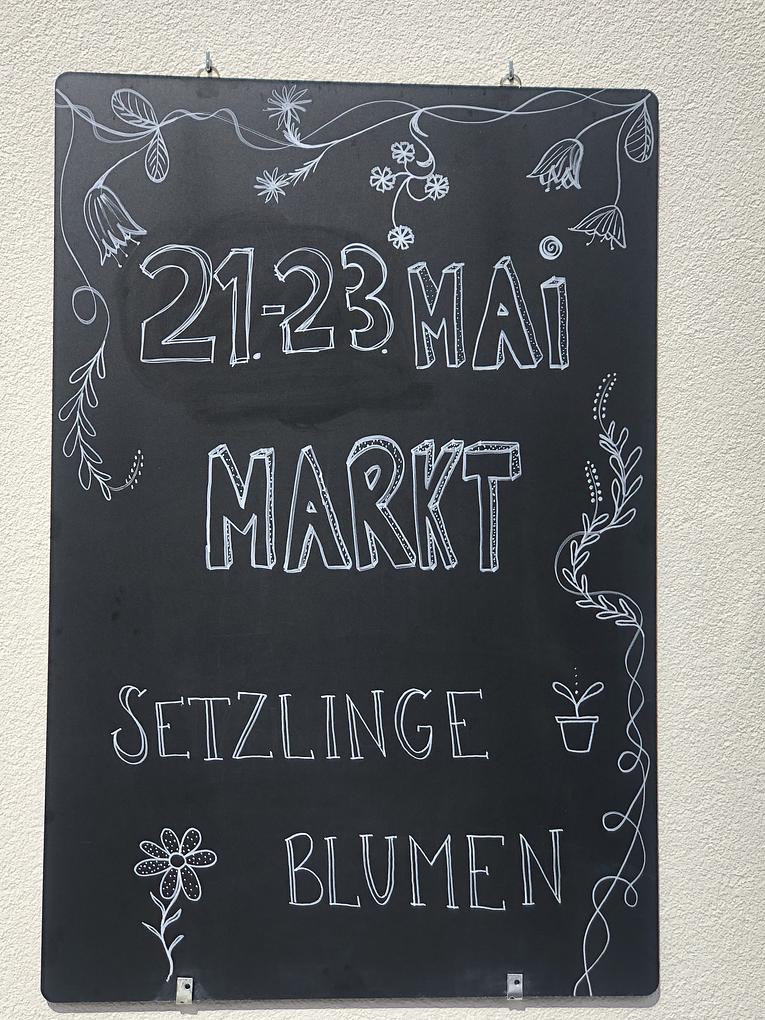 21.-23. MAi
MARKT
SETZLINGE
BLUMEN